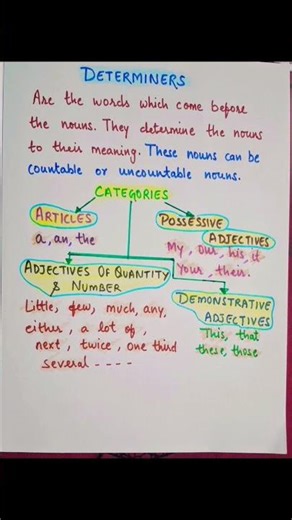 DETERMINERS
Are the words which come before
the nouns. They determine the nouns
to their meaning. These nouns can be
countable or uncountable nouns.
CATEGORIES
ARTICLES
a, an, the
POSSESSIVE
ADJECTIVES
My, our, his, it
Your, their.
ADJECTIVES OF QUANTITY
& NUMBER
Little, few, much, any,
either, a lot of,
next, twice, one third
several ----
DEMONSTRATIVE
ADJECTIVES
This, that
these, those